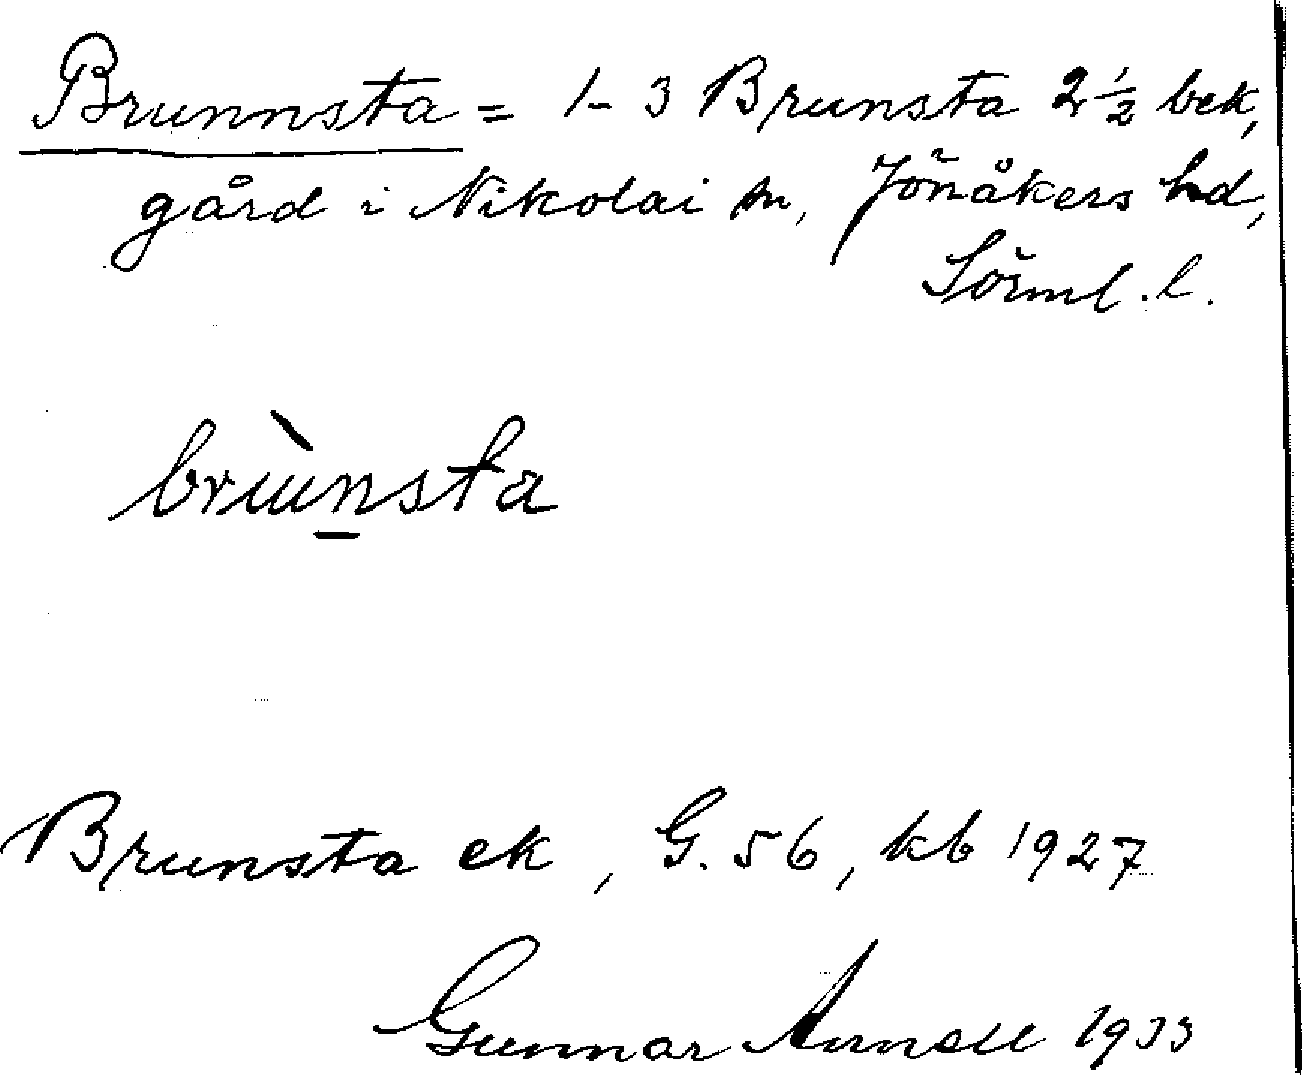 Brunnsta = 1-3 Brunsta 2 1/2 bek,
gård i Nikolai sn, Jönåkers hd,
Sörml. l.
brùn̲sta
Brunsta ek, G. 56, kb 1927
Gunnar Arnell 1933